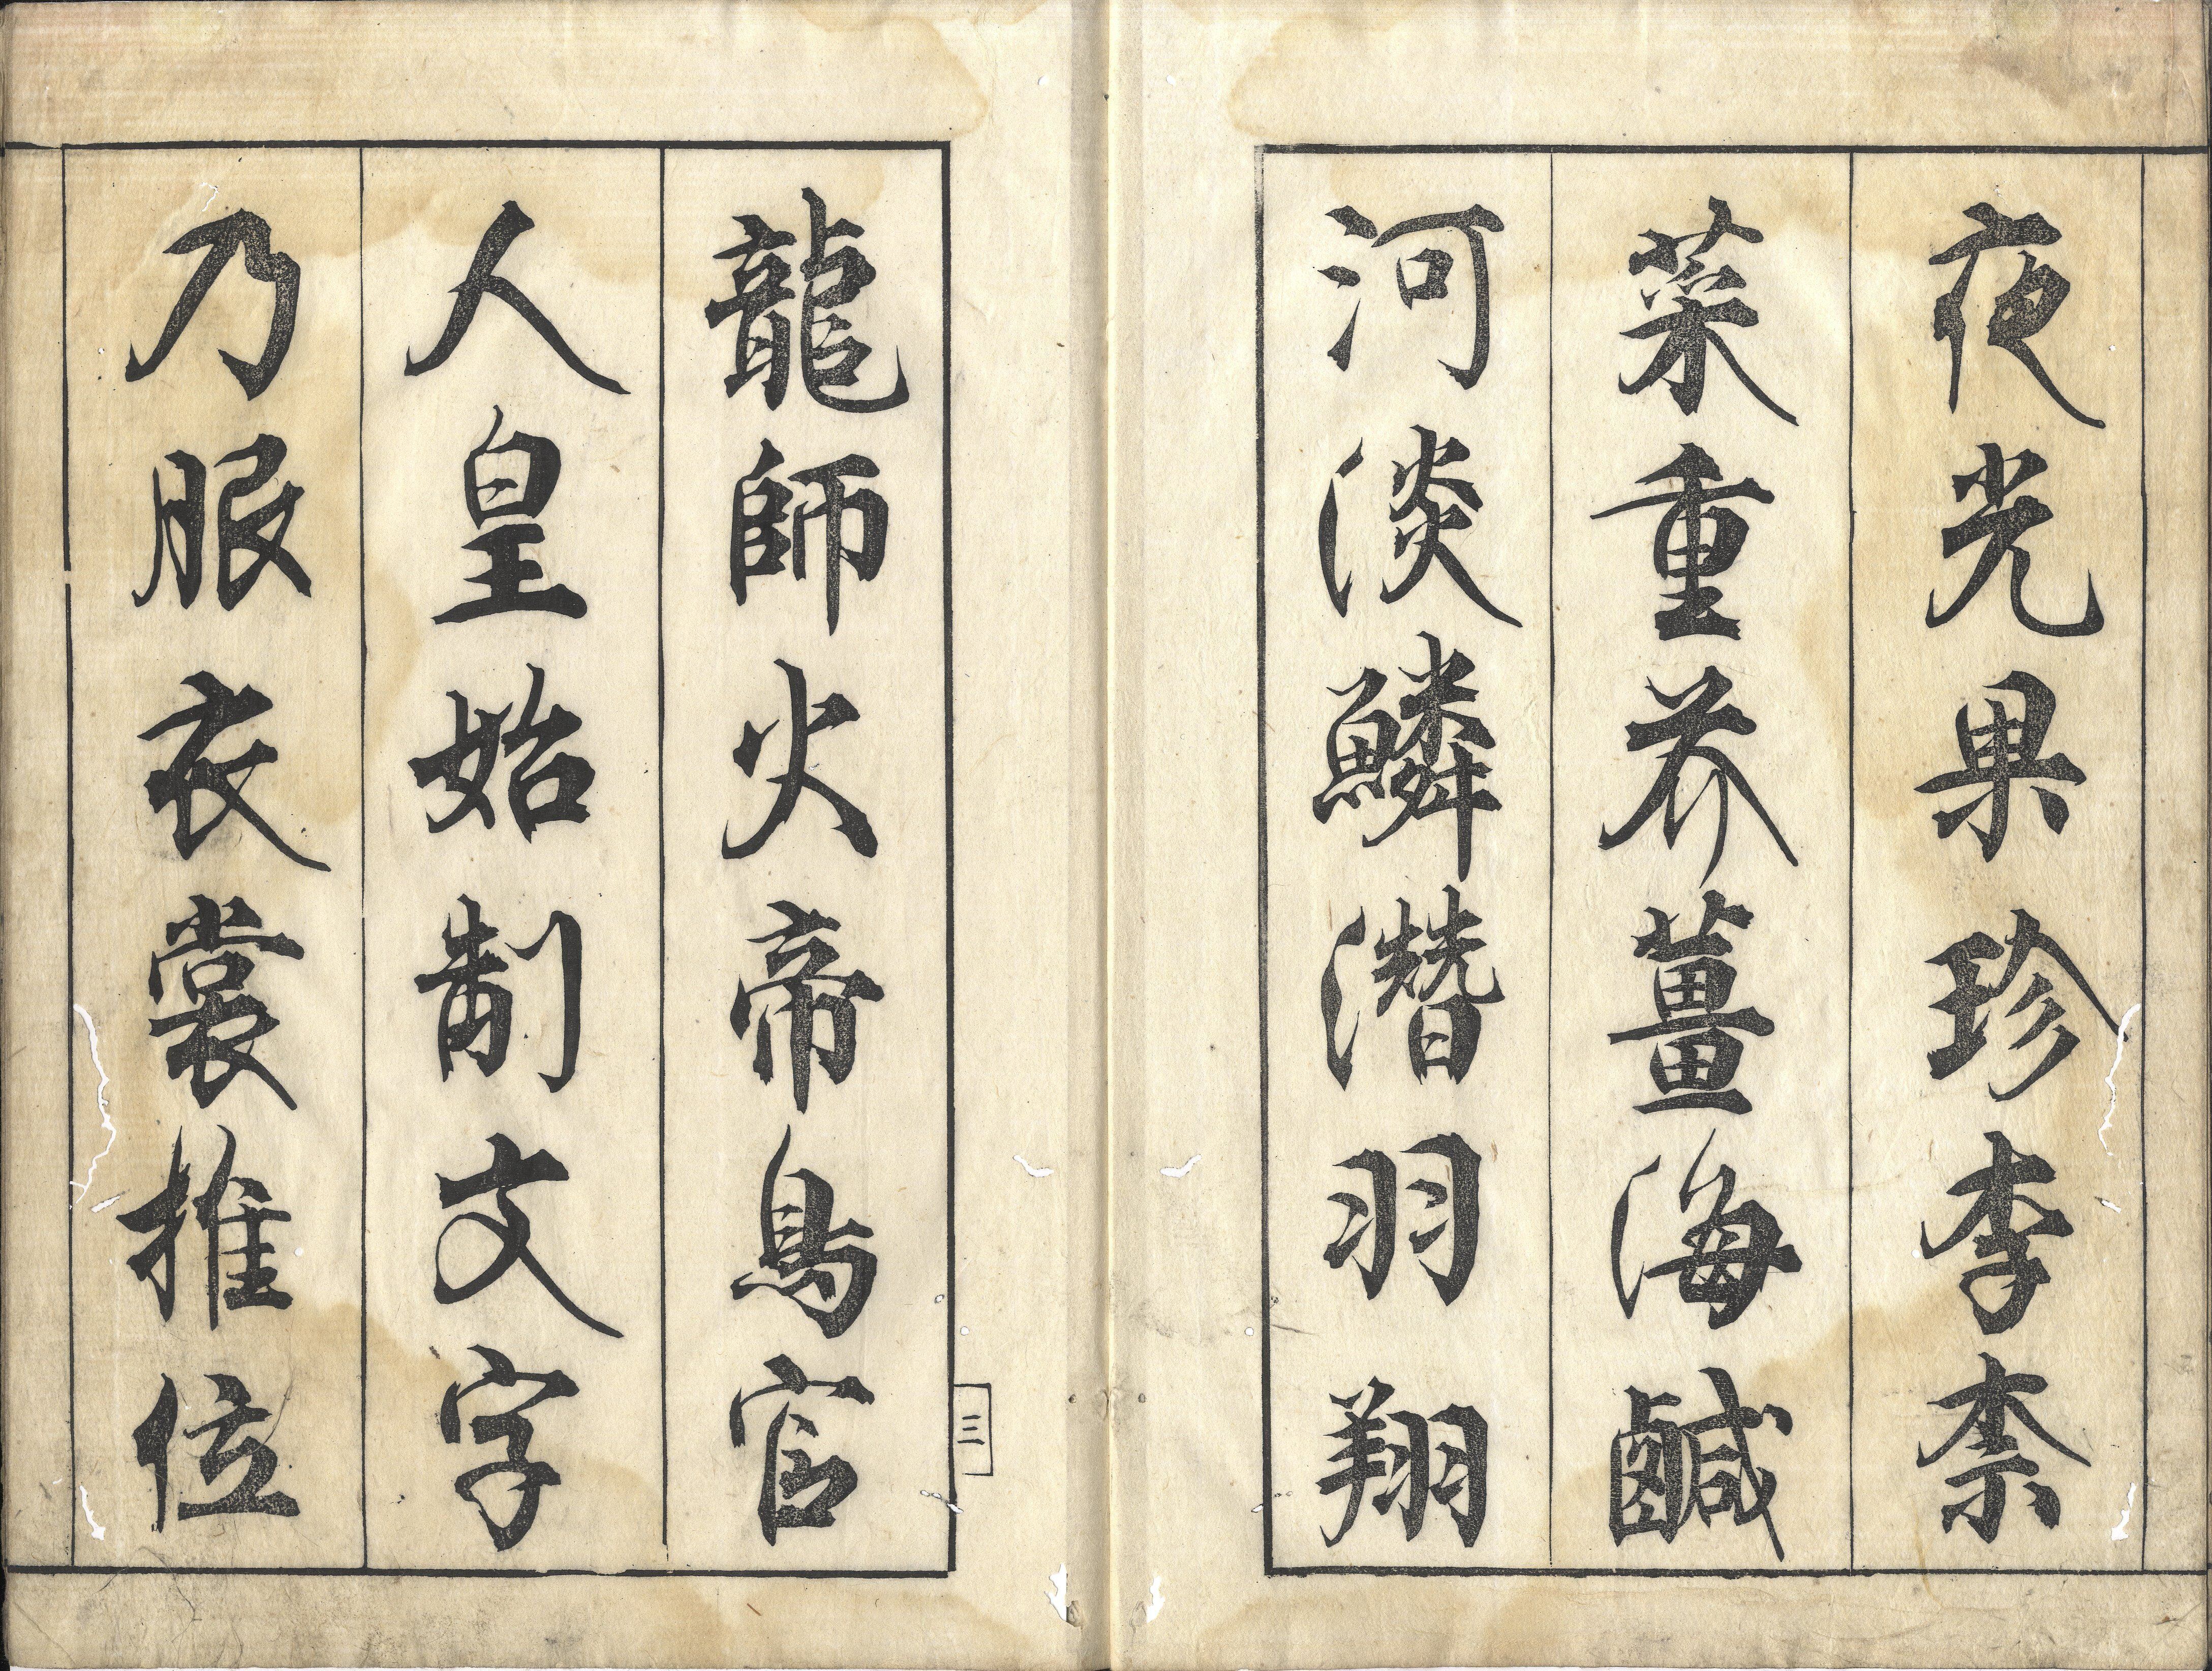 夜光果珍李柰
菜重芥薑海鹹
河淡鱗潛羽翔
龍師火帝鳥官
人皇始制文字
乃服衣裳推位
三